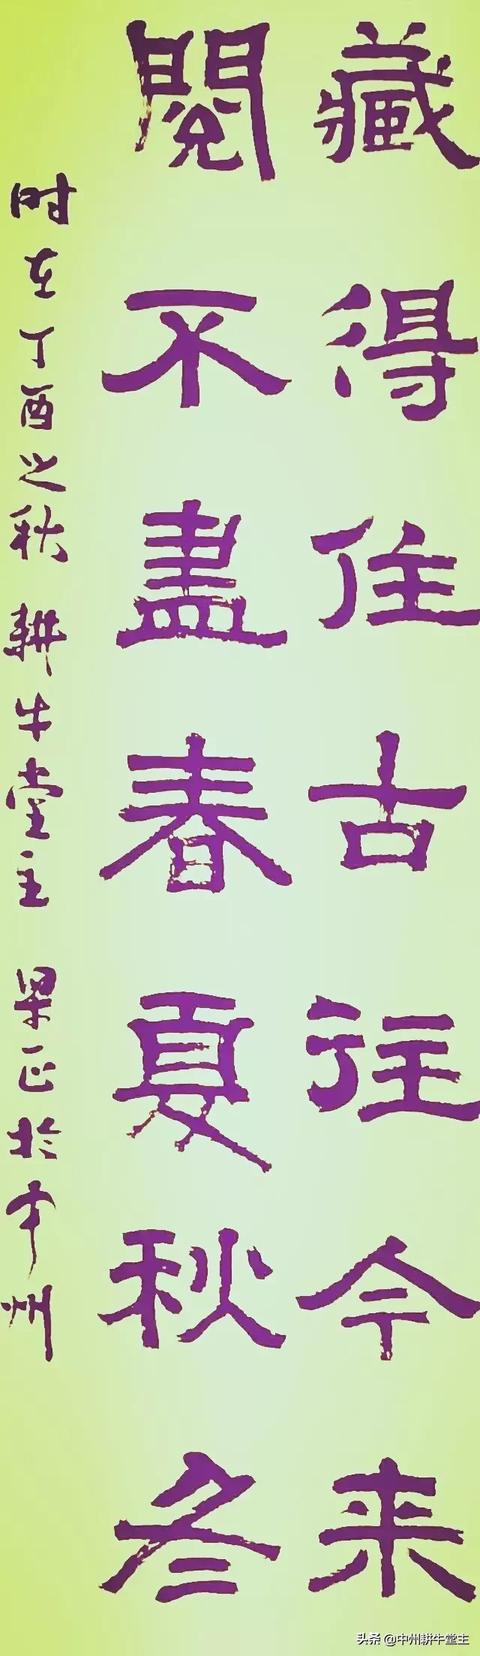 藏得住古往今来
閲不盡春夏秋冬
时在丁酉之秋 耕牛堂主 梁正於中州
头条 @中州耕牛堂主